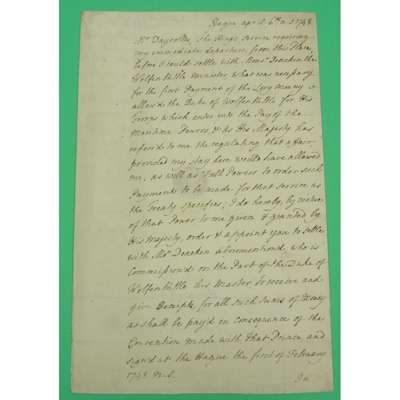 Hague april 6th n.s 1748.
Mr Dayrolles, The Kings Service requiring
my immediate departure from this Place,
before I could settle with Monsr
Wolfenbuttle Minister, what was necessary
for the first Payment of the Levy Money
allow'd the Duke of Wolfenbuttle for His
Troops which enter into the Pay of the
Maritime Powers, & As His Majesty has
referr'd to me the regulating that affair
provided my stay here would have allowed
me, as well as Full Powers to order such
Payments to be made, for that Service as
the Treaty specifies; I do hereby, by virtue
of that Power to me given & granted by
His Majesty, order & appoint you to settle
with Mr aforementiond, who is
Commissiond on the Part of the Duke of
Wolfenbuttle his Master to receive and
give Receipts for all such Sums of Money
as shall be pay'd in consequence of the
Convention made with that Prince, and
signd at the Hague the first of February
1748 n.s.